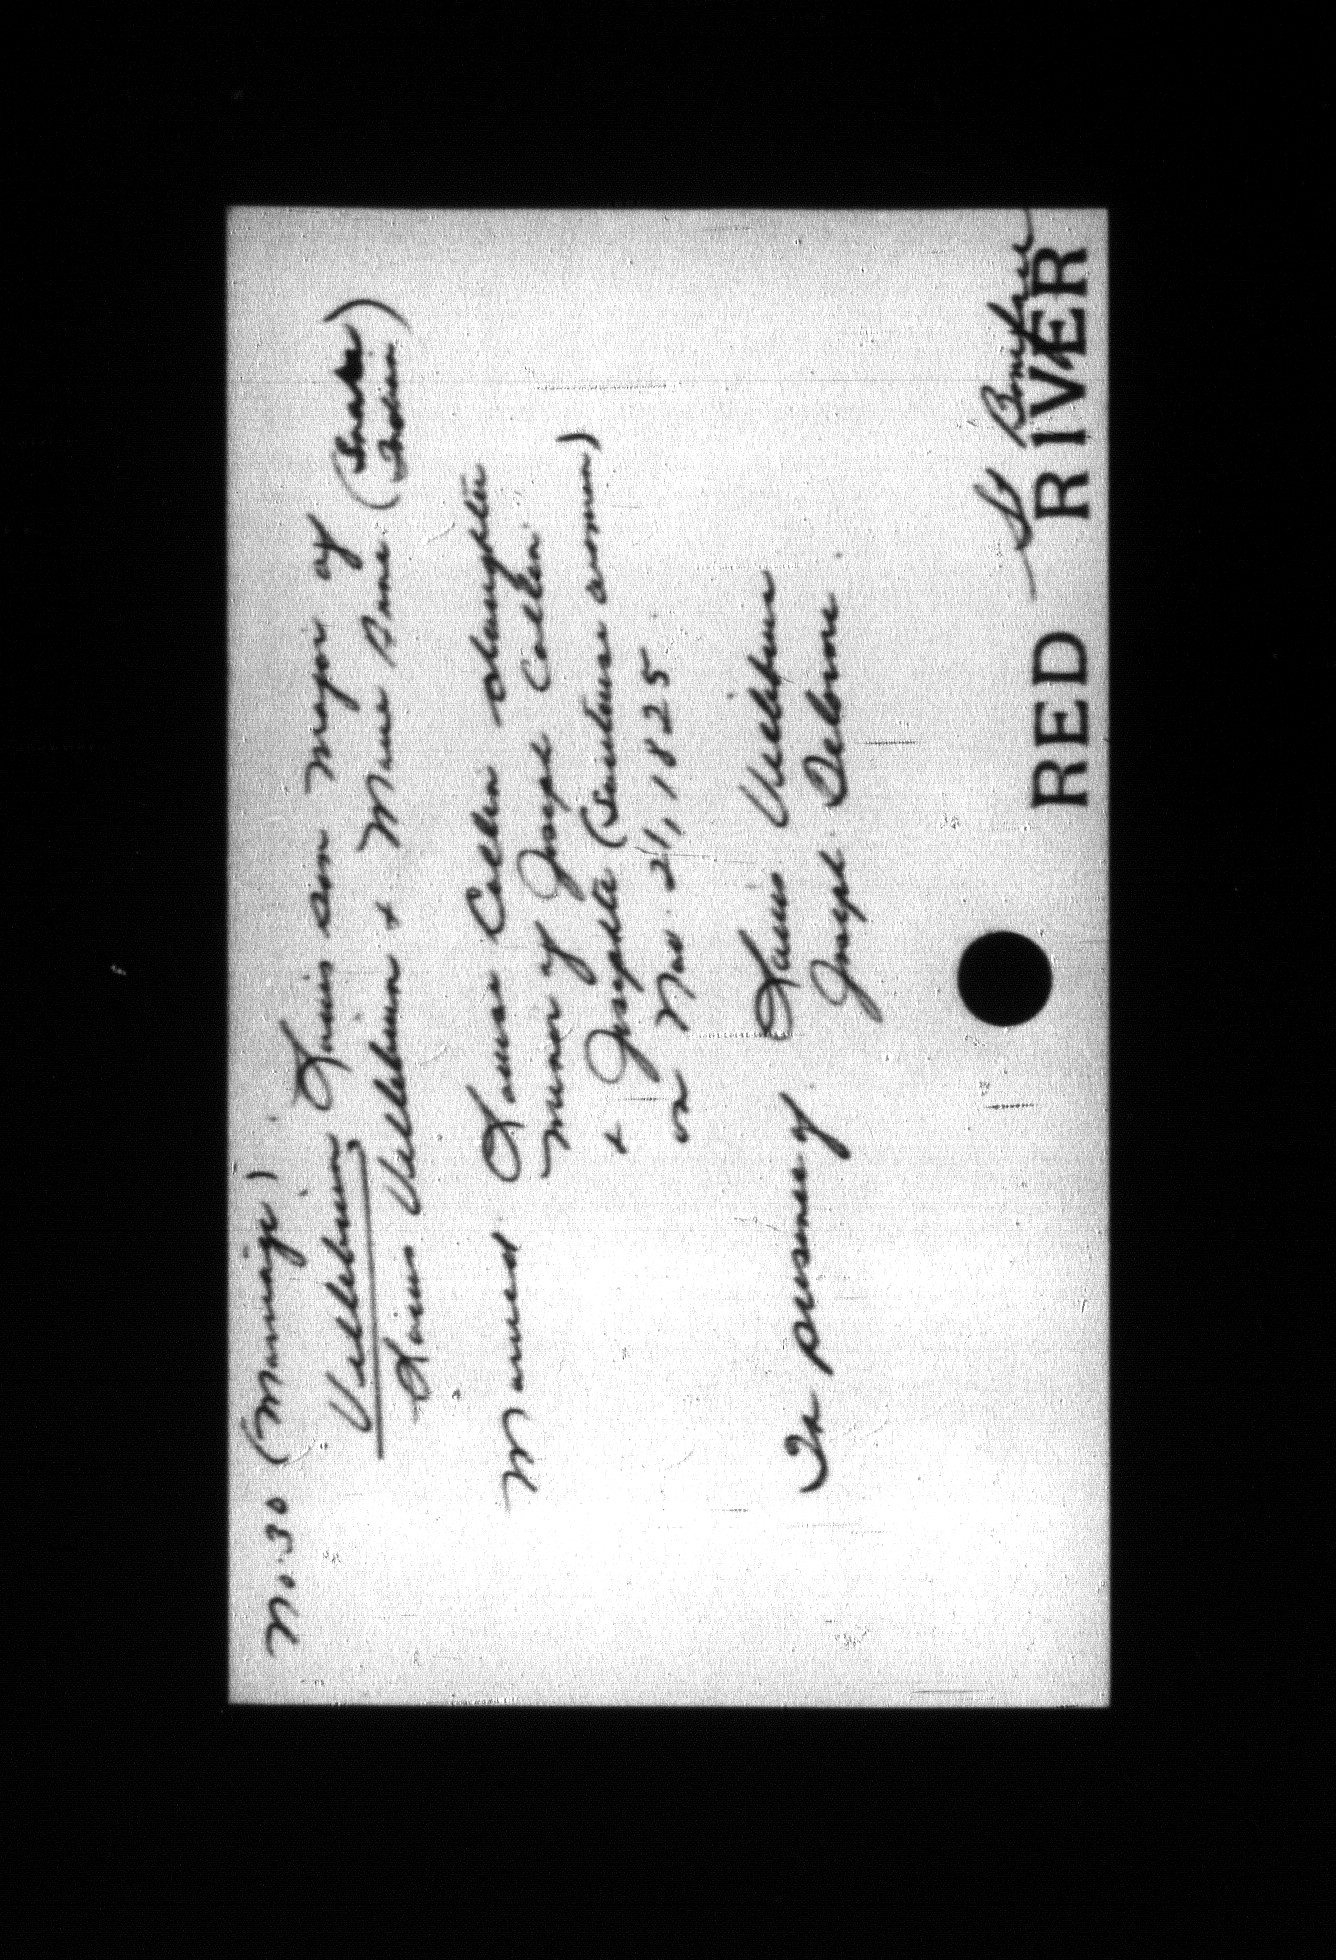 No. 30 (Marriage)
Vellebrun, Louis son major of
Louis Vellebrun & Marie Anne (Snake Indian)
Married Louise Collin daughter
minor of Joseph Collin
& Josephte (Sauteuse woman)
on Nov. 21, 1825.
In presence of Louis Vellebrun
Joseph Delorme.
St Boniface
RED RIVER